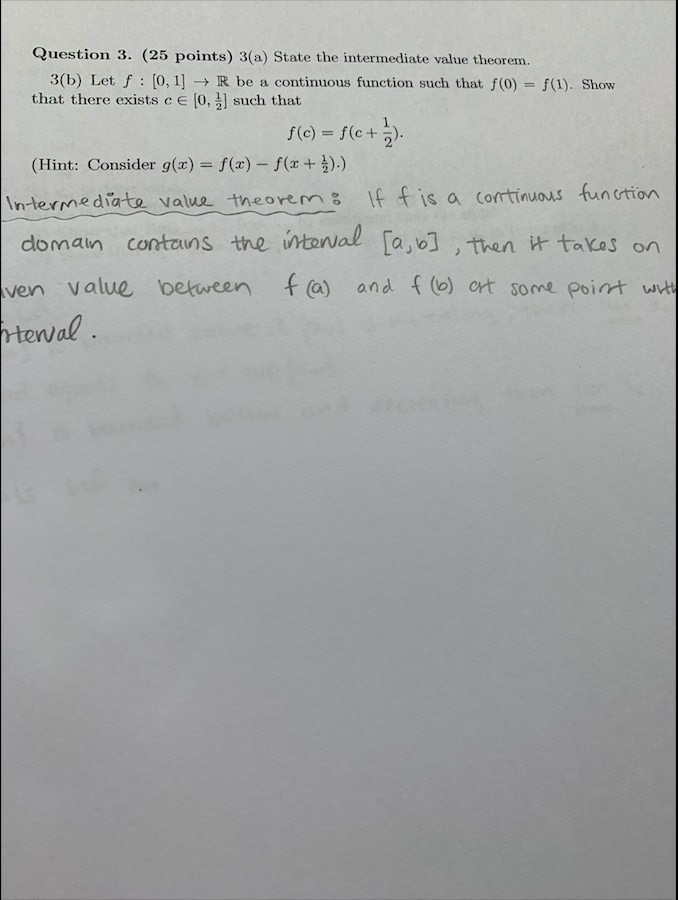 Question 3. (25 points) 3(a) State the intermediate value theorem.
3(b) Let f : [0, 1] → ℝ be a continuous function such that f(0) = f(1). Show
that there exists c ∈ [0, 1/2] such that
f(c) = f(c + 1/2).
(Hint: Consider g(x) = f(x) − f(x + 1/2).)
Intermediate value theorem : If f is a continuous function
domain contains the interval [a,b] , then it takes on
value between f(a) and f(b) at some point